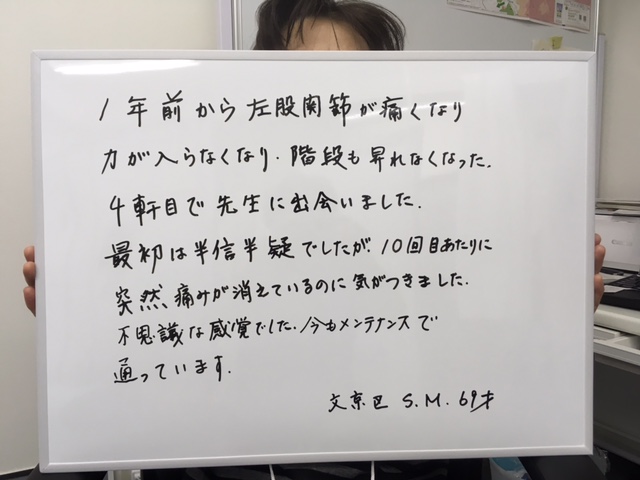 1年前から左股関節が痛くなり
力が入らなくなり、階段も昇れなくなった。
4軒目で先生に出会いました。
最初は半信半疑でしたが、10回目あたりに
突然痛みが消えているのに気がつきました。
不思議な感覚でした。今もメンテナンスで
通っています。
文京区 S.M. 69才